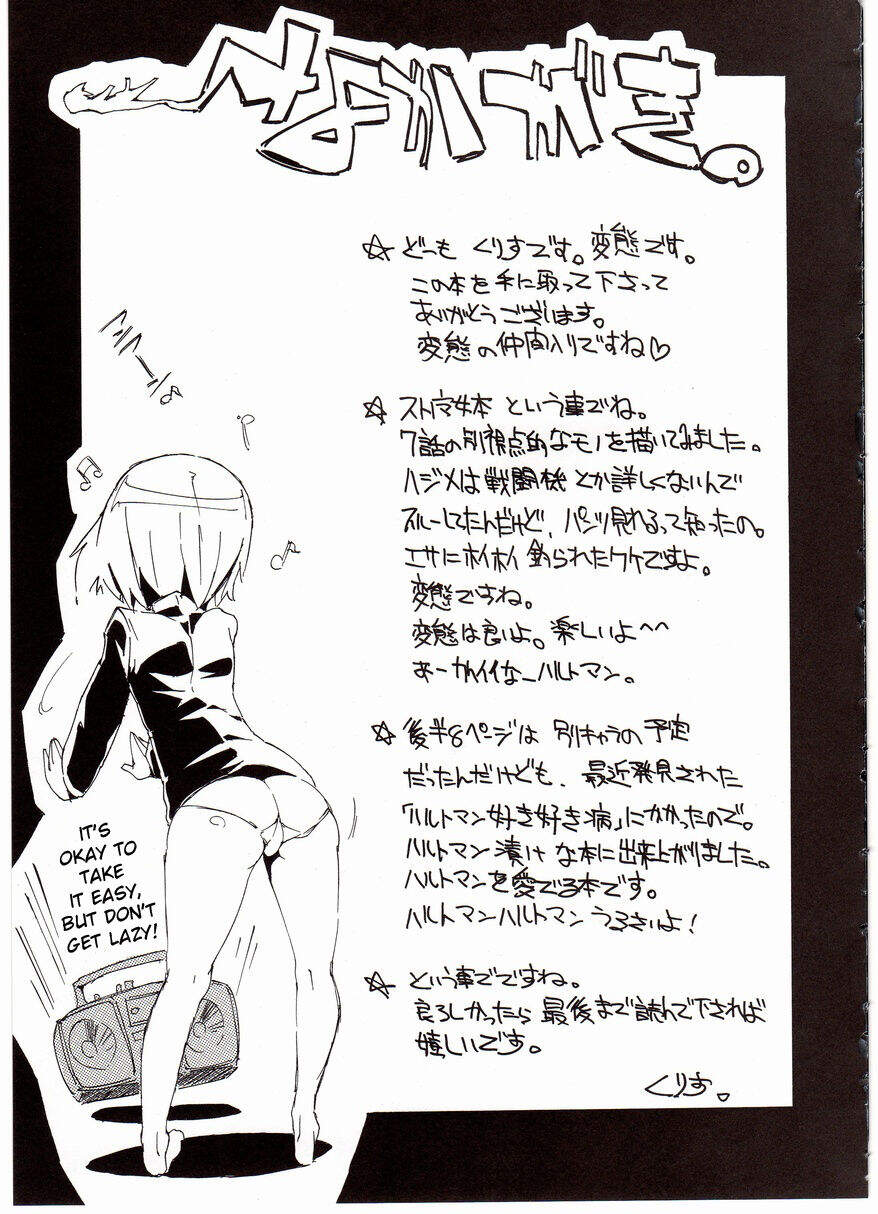 なかがき。
☆ どーも くりすです。変態です。
この本を手に取って下さって
ありがとうございます。
変態の仲間入りですね♡
☆ ストパン本 という事でね。
7話の別視点的なモノを描いてみました。
ハジメは戦闘機とか詳しくないんで
スルーしてたんだけど、パンツ見れるって知ったの。
エサにホイホイ釣られたワケですよ。
変態ですね。
変態は良いよ。楽しいよ^^
あーかわイイなーハルトマン。
☆ 後半8ページは 別キャラの予定
だったんだけども、最近発見された
「ハルトマン好き好き病」にかかったので。
ハルトマン漬けな本に出来上がりました。
ハルトマンを愛でる本です。
ハルトマンハルトマンうるさいよ!
☆ という事でですね。
良ろしかったら 最後まで読んで下されば
嬉しいです。
くりす。
IT'S
OKAY TO
TAKE
IT EASY,
BUT DON'T
GET LAZY!